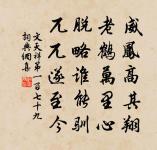 威鳳高其翔
老鶴萬里心
脫略誰能馴
兀兀遂至今
文天祥第一百七十九
詞典網集